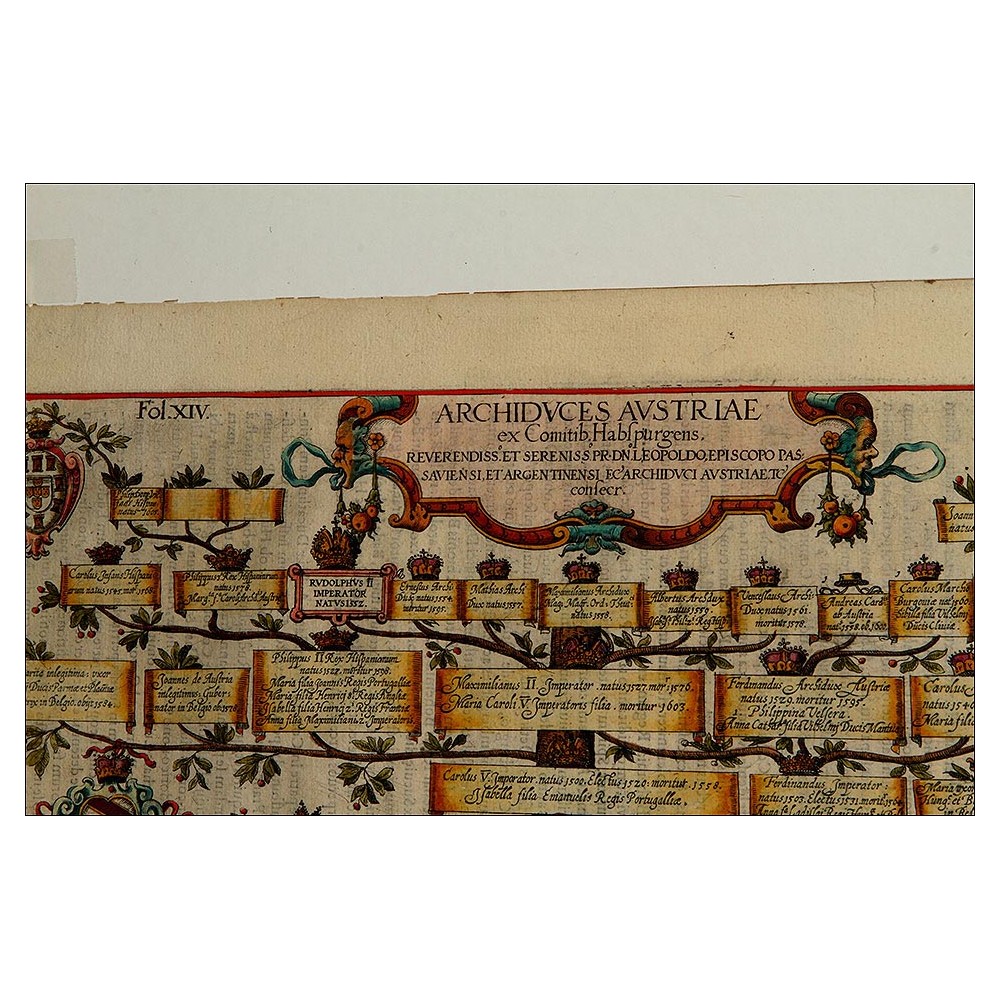 Fol.XIV.
ARCHIDVCES AVSTRIAE
ex Comitib, Habspurgens.
REVERENDISS. ET SERENISS. PR. DN. LEOPOLDO, EPISCOPO PAS:
SAVIENSI, ET ARGENTINENSI, ARCHIDVCI AVSTRIAE
consecr.
Carolus Infans Hispani
arum natus 1545. mor. 1568.
Philippus Rex Hispaniarum
natus 1578.
RVDOLPHVS II
IMPERATOR
NATVS 1552.
Ernestus Archi
Dux natus 1554.
moritur 1595.
Mathias Archi
Dux natus 1557.
Maximilianus Archidux
natus 1558.
Albertus Archdux
natus 1559.
Venceslaus Archi
Dux natus 1561.
moritur 1578.
Andreas Card.
ab Austria
nat. 1558. ob. 1600.
Carolus March
Burgoviæ nat. 1560
Sibilla filia Vilhelmi
Ducis Cliviæ
Joann
natus
inlegitima: uxor
Ducis Parmæ et
rx in Belgio. obijt 1584.
Joannes de Austria
inlegitimus: Guber:
nator in Belgio ob. 1578
Philippus II Rex Hispaniarum
natus 1527. moritur 1598.
Maria filia Joannis Regis Portugalliæ
Maria filia Henrici 8. Regis Angliæ
Isabella filia Henrici 2. Regis Franciæ
Anna filia Maximiliani 2. Imperatoris.
Maximilianus II. Imperator. natus 1527. mor: 1576.
Maria Caroli V. Imperatoris filia. moritur 1603.
Ferdinandus Archidux Austriæ
natus 1529. moritur 1595.
Philippina Velsera
Anna Cathar. filia Vilhelmi Ducis Mantuæ
Carolus
natus 1540
Maria
Carolus V. Imperator. natus 1500. Electus 1520. moritur. 1558.
Isabella filia Emanuelis Regis Portugalliæ.
Ferdinandus Imperator:
natus 1503. Electus 1531. morit. 1564
Maria uxor
Hung. et B
in Be